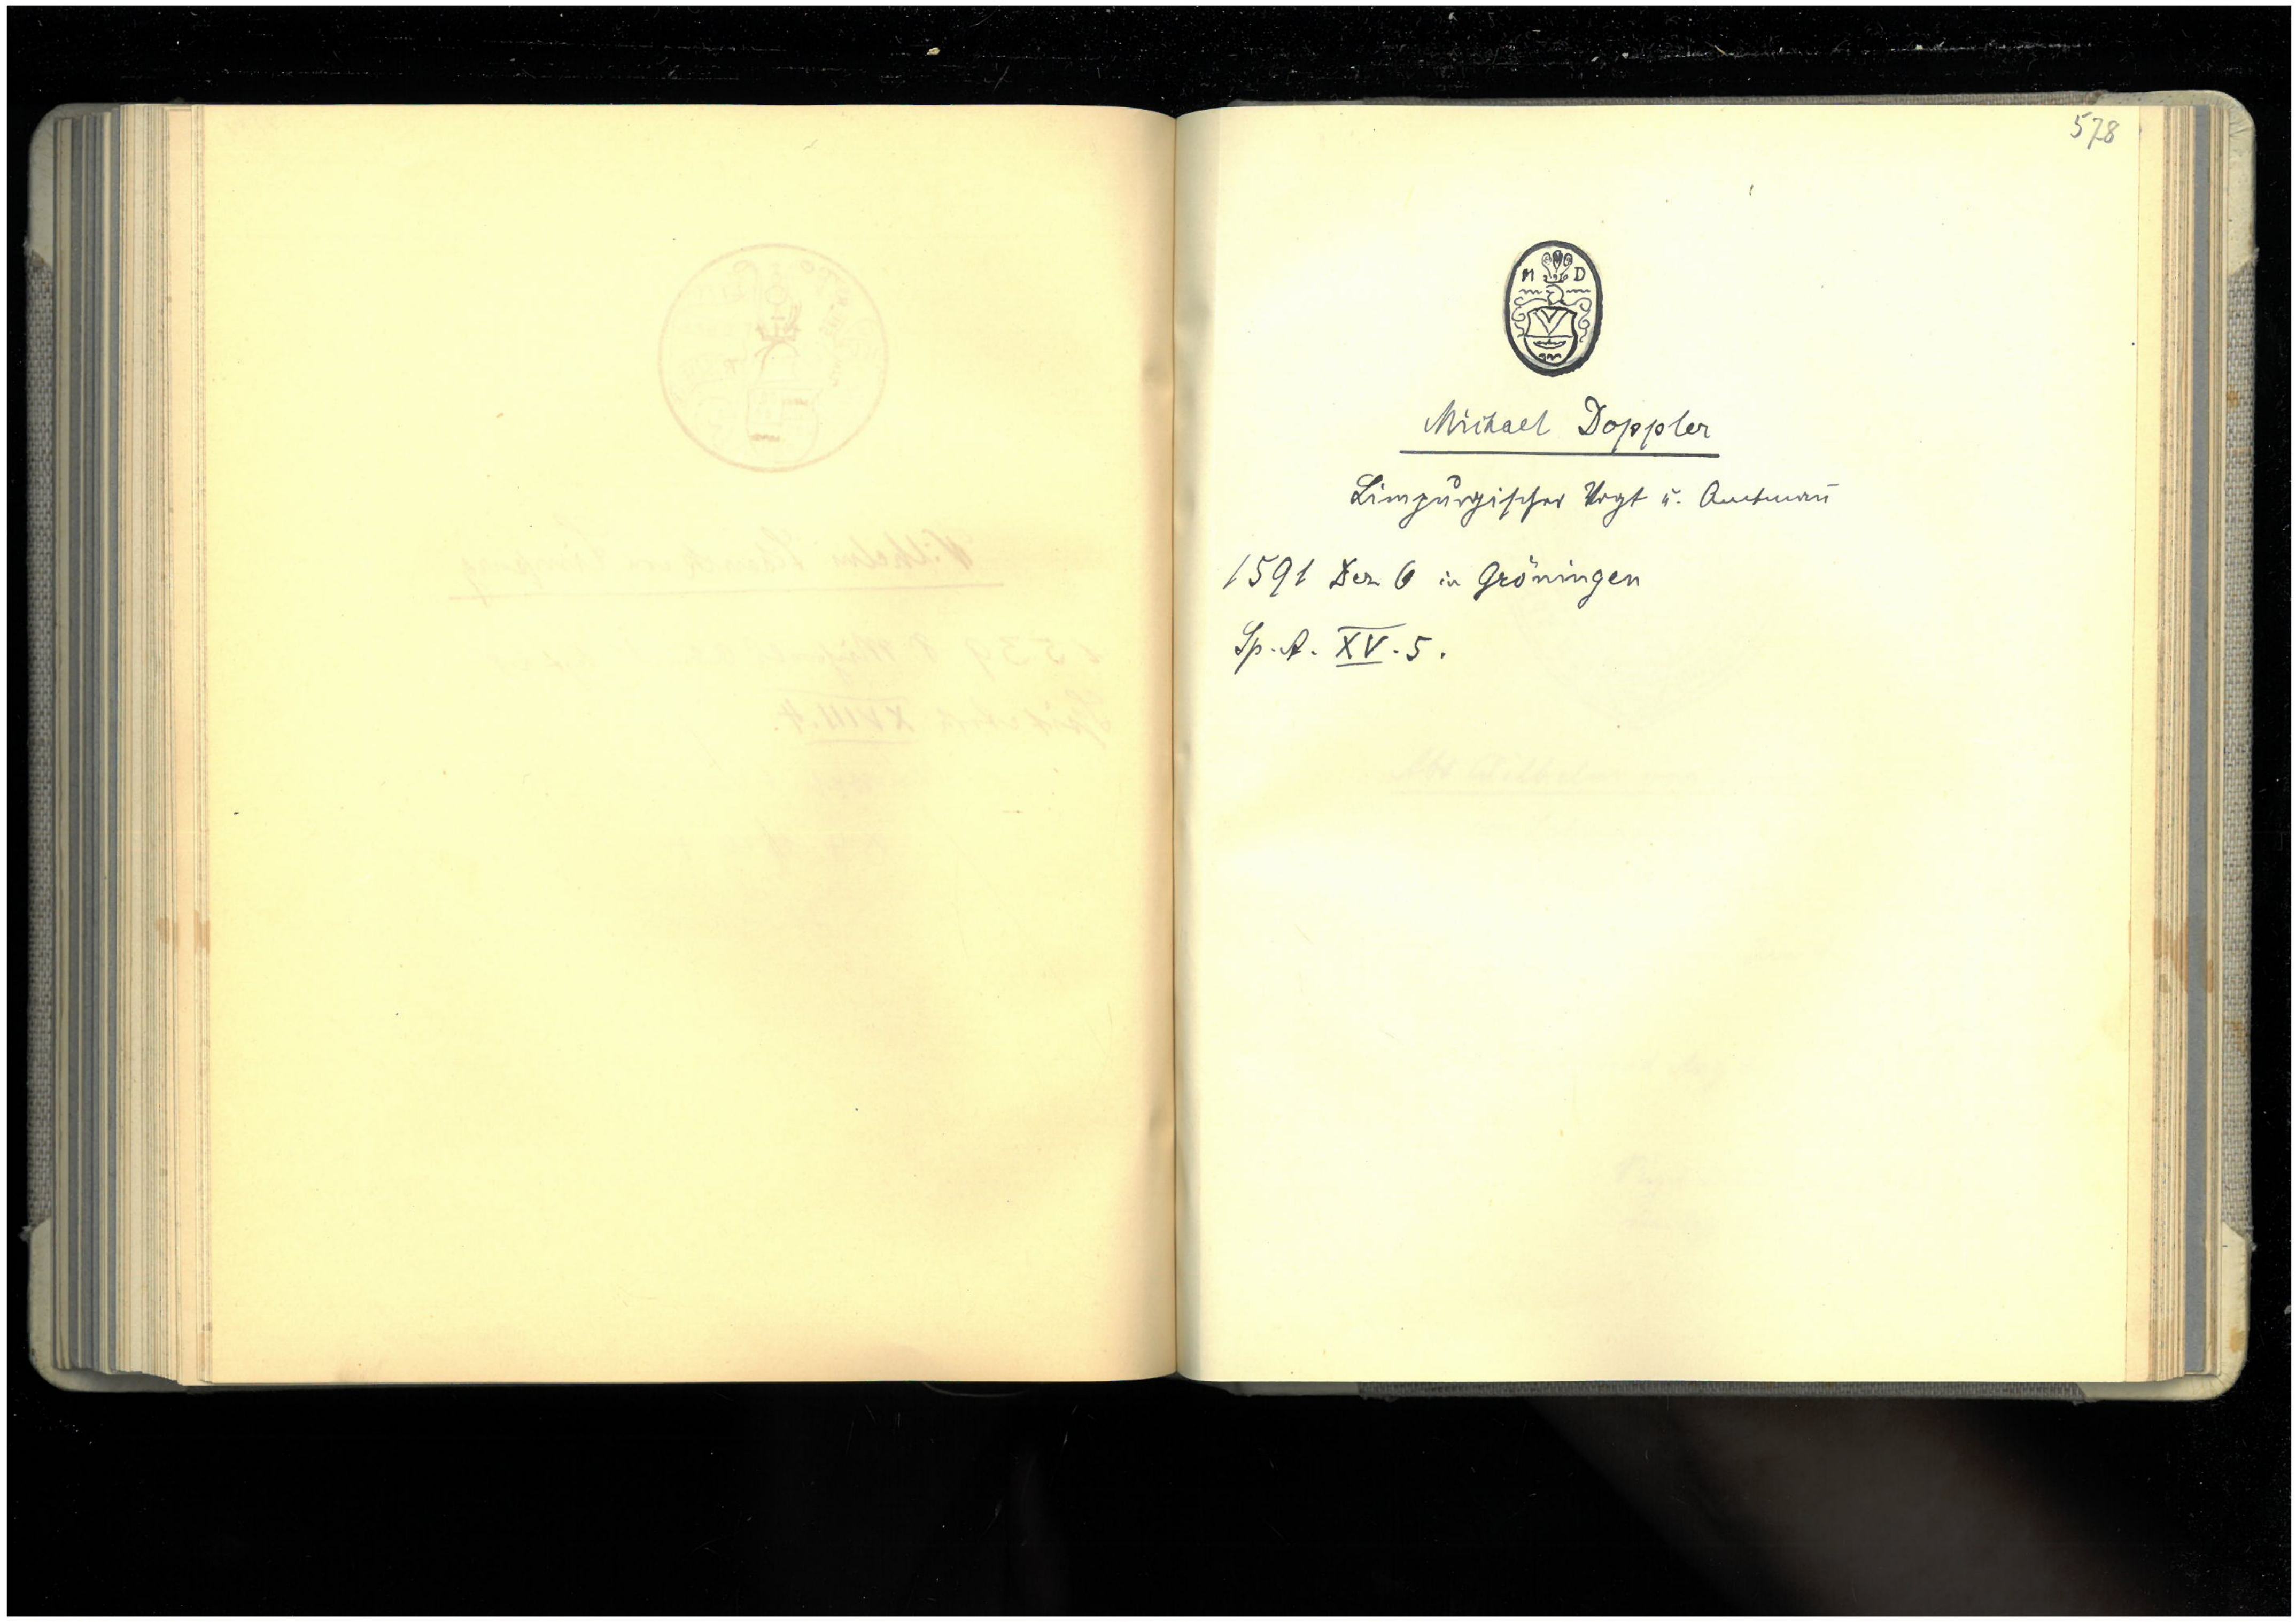 578
M D
Michael Doppler
Limpurgischer Vogt u. Amtman̄
1591 Dez 6 in Gröningen
Sp. A. XV. 5.